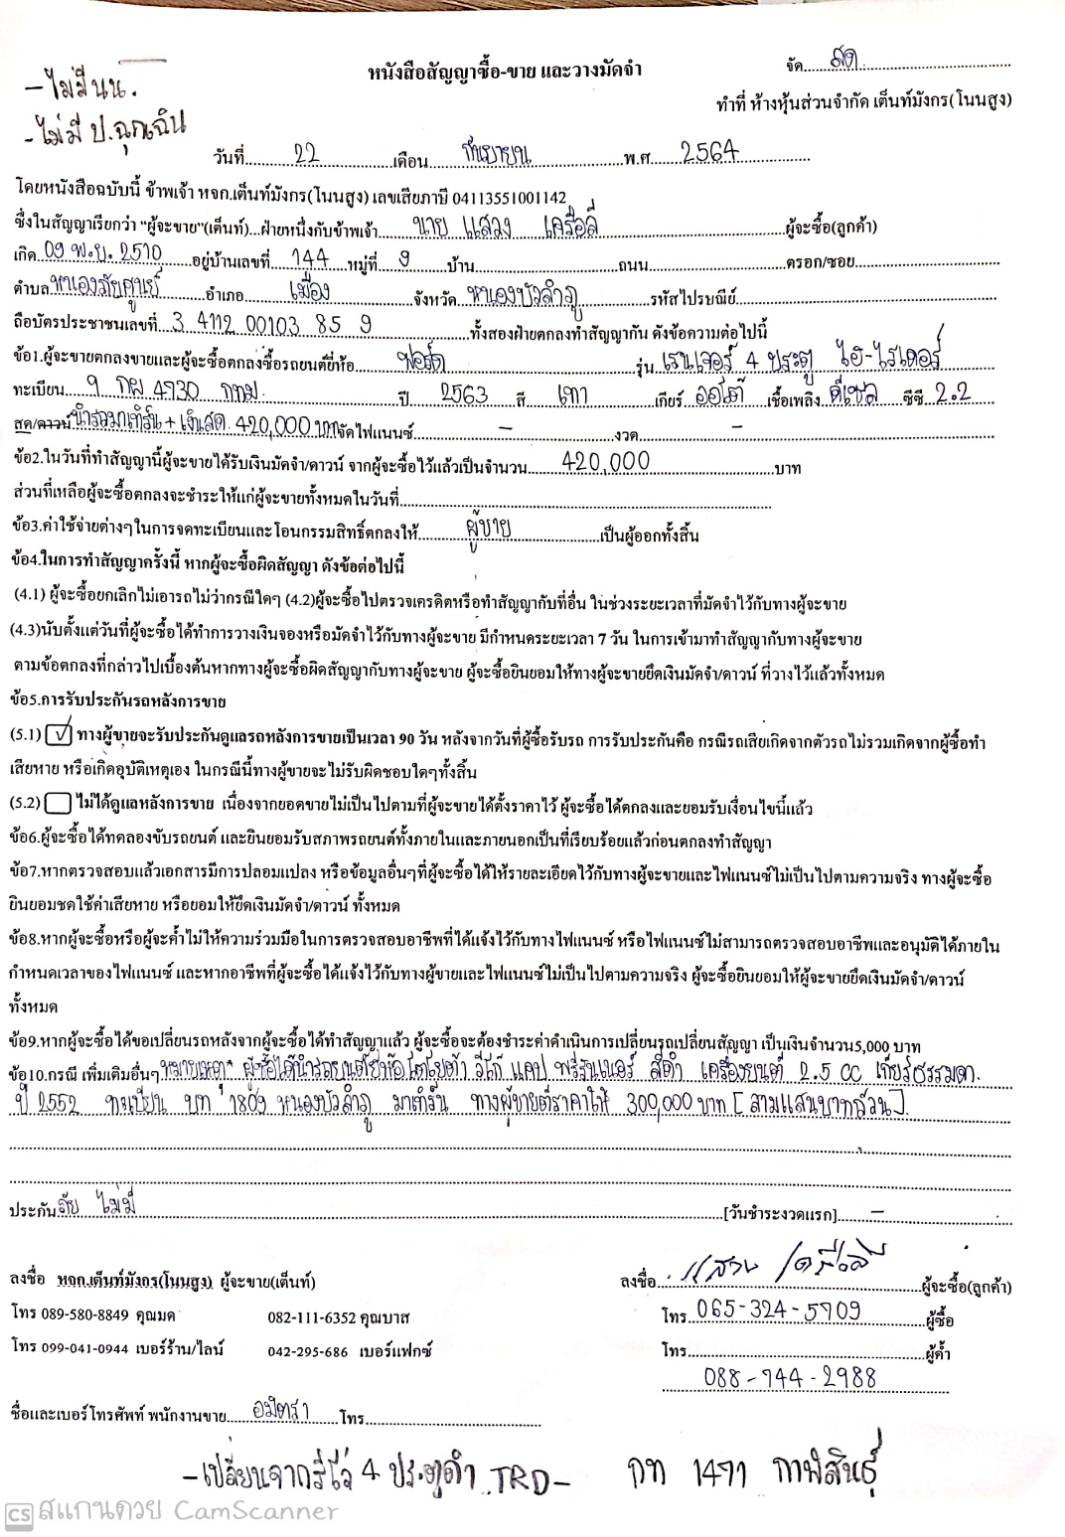 หนังสือสัญญาซื้อ-ขาย และวางมัดจำ
จัด สด
- ไม่มี นน.
- ไม่มี ป.ฉุกเฉิน
ทำที่ ห้างหุ้นส่วนจำกัด เต็นท์มังกร(โนนสูง)
วันที่ 22 เดือน กันยายน พ.ศ 2564
โดยหนังสือฉบับนี้ ข้าพเจ้า หจก.เต็นท์มังกร(โนนสูง) เลขเสียภาษี 04113551001142
ซึ่งในสัญญาเรียกว่า “ผู้จะขาย”(เต็นท์)...ฝ่ายหนึ่งกับข้าพเจ้า นาย แสวง เครือสี ผู้จะซื้อ(ลูกค้า)
เกิด 09 พ.ย. 2510 อยู่บ้านเลขที่ 144 หมู่ที่ 9 บ้าน ถนน ตรอก/ซอย
ตำบล หนองภัยศูนย์ อำเภอ เมือง จังหวัด หนองบัวลำภู รหัสไปรษณีย์
ถือบัตรประชาชนเลขที่ 3 4112 00103 85 9 ทั้งสองฝ่ายตกลงทำสัญญากัน ดังข้อความต่อไปนี้
ข้อ1.ผู้จะขายตกลงขายและผู้จะซื้อตกลงซื้อรถยนต์ยี่ห้อ ฟอร์ด รุ่น เรนเจอร์ 4 ประตู ไฮ-ไรเดอร์
ทะเบียน 9 กผ 4930 กทม ปี 2563 สี เทา เกียร์ ออโต้ เชื้อเพลิง ดีเซล ซีซี 2.2
สด/ดาวน์ นำรถมาเทิร์น + เงินสด 420,000 บาท จัดไฟแนนซ์ - งวด -
ข้อ2.ในวันที่ทำสัญญานี้ผู้จะขายได้รับเงินมัดจำ/ดาวน์ จากผู้จะซื้อไว้แล้วเป็นจำนวน 420,000 บาท
ส่วนที่เหลือผู้จะซื้อตกลงจะชำระให้แก่ผู้จะขายทั้งหมดในวันที่
ข้อ3.ค่าใช้จ่ายต่างๆในการจดทะเบียนและโอนกรรมสิทธิ์ตกลงให้ ผู้ขาย เป็นผู้ออกทั้งสิ้น
ข้อ4.ในการทำสัญญาครั้งนี้ หากผู้จะซื้อผิดสัญญา ดังข้อต่อไปนี้
(4.1) ผู้จะซื้อยกเลิกไม่เอารถไม่ว่ากรณีใดๆ (4.2)ผู้จะซื้อไปตรวจเครดิตหรือทำสัญญากับที่อื่น ในช่วงระยะเวลาที่มัดจำไว้กับทางผู้จะขาย
(4.3)นับตั้งแต่วันที่ผู้จะซื้อได้ทำการวางเงินจองหรือมัดจำไว้กับทางผู้จะขาย มีกำหนดระยะเวลา 7 วัน ในการเข้ามาทำสัญญากับทางผู้จะขาย
ตามข้อตกลงที่กล่าวไปเบื้องต้นหากทางผู้จะซื้อผิดสัญญากับทางผู้จะขาย ผู้จะซื้อยินยอมให้ทางผู้จะขายยึดเงินมัดจำ/ดาวน์ ที่วางไว้แล้วทั้งหมด
ข้อ5.การรับประกันรถหลังการขาย
(5.1) ✓ ทางผู้ขายจะรับประกันดูแลรถหลังการขายเป็นเวลา 90 วัน หลังจากวันที่ผู้ซื้อรับรถ การรับประกันคือ กรณีรถเสียเกิดจากตัวรถไม่รวมเกิดจากผู้ซื้อทำ
เสียหาย หรือเกิดอุบัติเหตุเอง ในกรณีนี้ทางผู้ขายจะไม่รับผิดชอบใดๆทั้งสิ้น
(5.2) ไม่ได้ดูแลหลังการขาย เนื่องจากยอดขายไม่เป็นไปตามที่ผู้จะขายได้ตั้งราคาไว้ ผู้จะซื้อได้ตกลงและยอมรับเงื่อนไขนี้แล้ว
ข้อ6.ผู้จะซื้อได้ทดลองขับรถยนต์ และยินยอมรับสภาพรถยนต์ทั้งภายในและภายนอกเป็นที่เรียบร้อยแล้วก่อนตกลงทำสัญญา
ข้อ7.หากตรวจสอบแล้วเอกสารมีการปลอมแปลง หรือข้อมูลอื่นๆที่ผู้จะซื้อได้ให้รายละเอียดไว้กับทางผู้จะขายและไฟแนนซ์ไม่เป็นไปตามความจริง ทางผู้จะซื้อ
ยินยอมชดใช้ค่าเสียหาย หรือยอมให้ยึดเงินมัดจำ/ดาวน์ ทั้งหมด
ข้อ8.หากผู้จะซื้อหรือผู้จะค้ำไม่ให้ความร่วมมือในการตรวจสอบอาชีพที่ได้แจ้งไว้กับทางไฟแนนซ์ หรือไฟแนนซ์ไม่สามารถตรวจสอบอาชีพและอนุมัติได้ภายใน
กำหนดเวลาของไฟแนนซ์ และหากอาชีพที่ผู้จะซื้อได้แจ้งไว้กับทางผู้ขายและไฟแนนซ์ไม่เป็นไปตามความจริง ผู้จะซื้อยินยอมให้ผู้จะขายยึดเงินมัดจำ/ดาวน์
ทั้งหมด
ข้อ9.หากผู้จะซื้อได้ขอเปลี่ยนรถหลังจากผู้จะซื้อได้ทำสัญญาแล้ว ผู้จะซื้อจะต้องชำระค่าดำเนินการเปลี่ยนรถเปลี่ยนสัญญา เป็นเงินจำนวน5,000 บาท
ข้อ10.กรณี เพิ่มเติมอื่นๆ หมายเหตุ* ผู้ซื้อได้นำรถยนต์ยี่ห้อโตโยต้า วีโก้ แคป พรีรันเนอร์ สีดำ เครื่องยนต์ 2.5 CC เกียร์ธรรมดา
ปี 2552 ทะเบียน บท 1809 หนองบัวลำภู มาเทิร์น ทางผู้ขายตีราคาให้ 300,000 บาท [สามแสนบาทถ้วน]
ประกัน ภัย ไม่มี [วันชำระงวดแรก] -
ลงชื่อ หจก.เต็นท์มังกร(โนนสูง) ผู้จะขาย(เต็นท์)
ลงชื่อ แสวง เครือสี ผู้จะซื้อ(ลูกค้า)
โทร 089-580-8849 คุณมด 082-111-6352 คุณบาส
โทร 065-324-5909 ผู้ซื้อ
โทร 099-041-0944 เบอร์ร้าน/ไลน์ 042-295-686 เบอร์แฟกซ์
โทร ผู้ค้ำ
088-944-2988
ชื่อและเบอร์โทรศัพท์ พนักงานขาย อมิตรา โทร
- เปลี่ยนจากรีโว่ 4 ประตูดำ TRD - กท 1491 กาฬสินธุ์
CS สแกนด้วย CamScanner